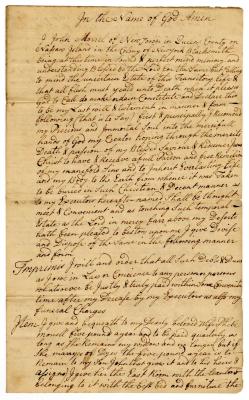 In the Name of God Amen
I John Morrell of New Town in Queens County on
Nassau Island in the Colony of New York Blacksmith
being at this time in sound & perfect mind memory and
understanding Blessed be the Lord for the same But calling
to mind the uncertain State of this Transitory Life &
that all flesh must yeald unto Death when it please
God to Call do make ordain Constitute and Declare this
to be my Last will & Testament in manner & form
following (that is to Say) first & principally I Commend
my Precious and Immortal Soul into the mercifull
hands of God my Creator hoping through the merits
Death & passion of my Blessed Saviour & Redeemer Jesus
Christ to have & Receive a full Pardon and free Remission
of my manifold Sins and to Inherit Everlasting Life
and my Body to the Earth from whence it was Taken
to be buried in Such Christian & Decent manner as
to my Executors hereafter named Shall be thought
meet & Convenient and as touching Such Temporal
Estate as the Lord in mercy far above my Deserts
hath been pleased to bestow upon me I give Devise
and Dispose of the Same in the following manner
and form
Imprimis I will and order that all Such Debts & Dues
as I owe in Law or Conscience to any person or persons
whatsoever be Justly & truly paid within Some Convenient
time after my Decease by my Executors as also my
funeral Charges
Item I give and bequeath to my Dearly beloved wife
Morrell five pounds a year to be paid quarterly as
long as She Remains my widow and no longer but if
She marrys or Dyes the five pounds a year is to
Remain to my Son John that gave it and to his heirs &
assigns I give her the East Room with the
belonging to it with the best bed and furniture the